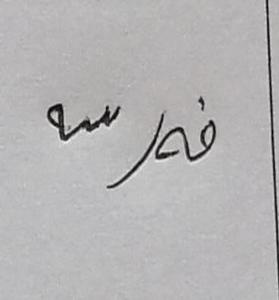 فهرسه